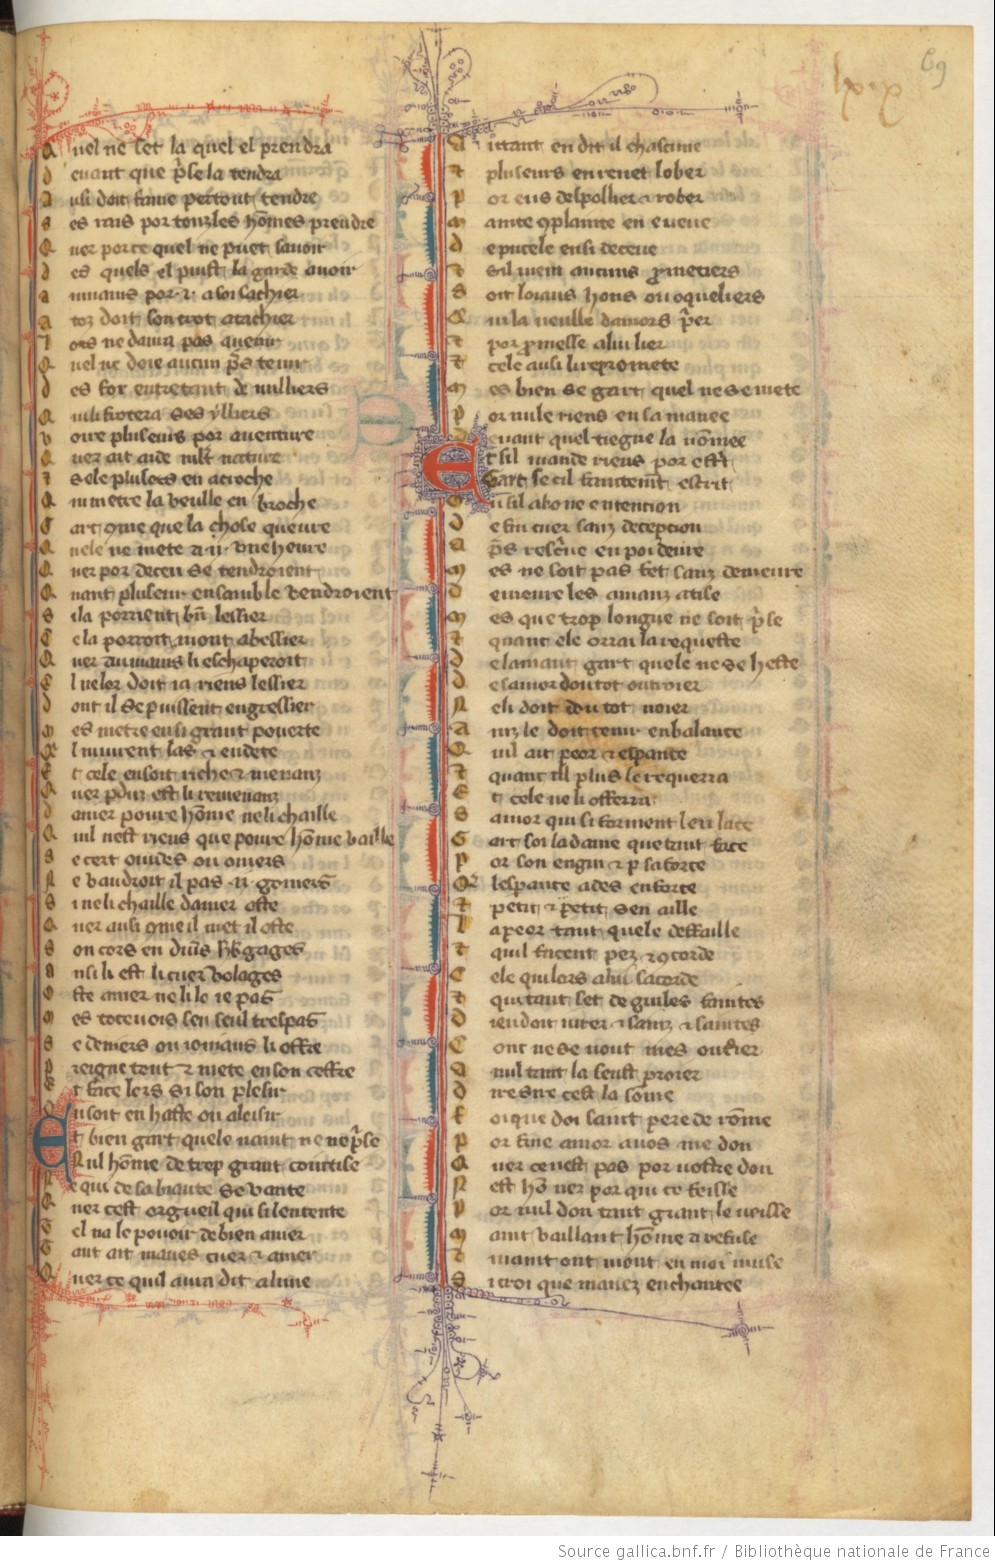 lx·x
69
Q uel ne set la quel el prendra
D evant que pͥse la tendra
A usi doit fame pertout tendre
S es rais por touz les hōmes prendre
Q uer por ce quel ne puet savoir
D es quels el puist la garde avoir
A
A toz doit son croc atachier
L ors ne devra pas avenir
Q uel ne doie aucun pͥs tenir
D es fox entretant de milliers
Q uili frotera ses illiers
V oire pluseurs por aventure
Q uer art aide mlt nature
E sele pluseurs en acroche
Q metre la veulle en broche
G art 9me que la chose queure
Q uele ne mete a ·ii· une heure
Q uer por deceu se tendroient
Q uant pluseur ensamble vendroient
S ila porrient bn̄ lessier
C e la porroit mont abessier
Q uer au mains li eschaperoit
C
Q ue lor doit ia riens lessier
D ont il se puissent engressier
M es metre en si grant poverte
Q
E t cele en soit riche et menanz
Q uer pduz est li remenanz
D amer povre hōme ne li chaille
Q uil nest riens que povre hōme vaille
S e cert ovides ou omers
N e vaudroit il pas ·ii· gomers
N e li chaille damer oste
Q uer ausi 9me il met il oste
S on cors en divs hb̄gages
A nsi li est li cuer volages
O ste amer ne li lo ie pas
M es totevois sen seul trespas
S e deniers ou ioiaus li offre
P reigne tout et mete en son coffre
E t face lors si son plesir
O u soit en haste ou a lesir
E t bien gart quele naint ne ne pͥse
N ul hōme de trop grant cointise
N e qui de sa biaute se vante
Q uer cest orgueil qui si le tente
C el na le povoir de bien amer
T ant ait mauves cuer et amer
Q uer ce quil aura dit a lune
A utant en dit il chascune
E pluseurs en revet lober
P or eus despollier et rober
M ainte 9plainte en e veue
D e pucele ensi deceue
E sil vient aucuns pͦmetiers
S oit loiaus hons ou oqueliers
Q ui la veulle damors pͥer
E por pͦmesse a lui lier
E cele ausi li repromete
M es bien se gart quel ne se mete
P or nule riens en sa manee
D evant quel tiegne la mōnee
E t sil mande riens por escͥt
E sgart se cil faintemēt escrit
O u sil a bone entention
D e fin cuer sanz deception
A pͥs rescͥve en poi deure
M es ne soit pas fet sanz demeure
D emeure les amanz atise
M es que trop longue ne soit pͥse
E quant ele orra la requeste
D e lamant gart quele ne se heste
D e samor dou tot outroier
N e li doit dou tot noier
A inz le doit tenir en balance
Q uil ait peor et espance
E quant cil plus le requerra
E t cele ne li offerra
S amor qui si forment leu lace
G art soi la dame que tant face
P or son engin et p sa force
Q lespance ades enforce
E petit et petit sen aille
L a peor tant quele deffaille
E quil facent pez et 9corde
C ele qui lors a lui sacorde
E qui tant set de guiles faintes
D ieu doit iurer et sainz et saintes
C onc ne se vout mes outͥer
A nul tant la seust proier
D ire sire cest la some
F oi que doi saint pere de rōme
P or fine amor avos me don
Q uer ce nest pas por vostre don
N est hō ner por qui ce feisse
P or nul don tant grant le veisse
M aint vaillant hōme a refuse
E maint ont mont en moi muse
S i croi que mavez enchantee
Source gallica.bnf.fr / Bibliothèque nationale de France